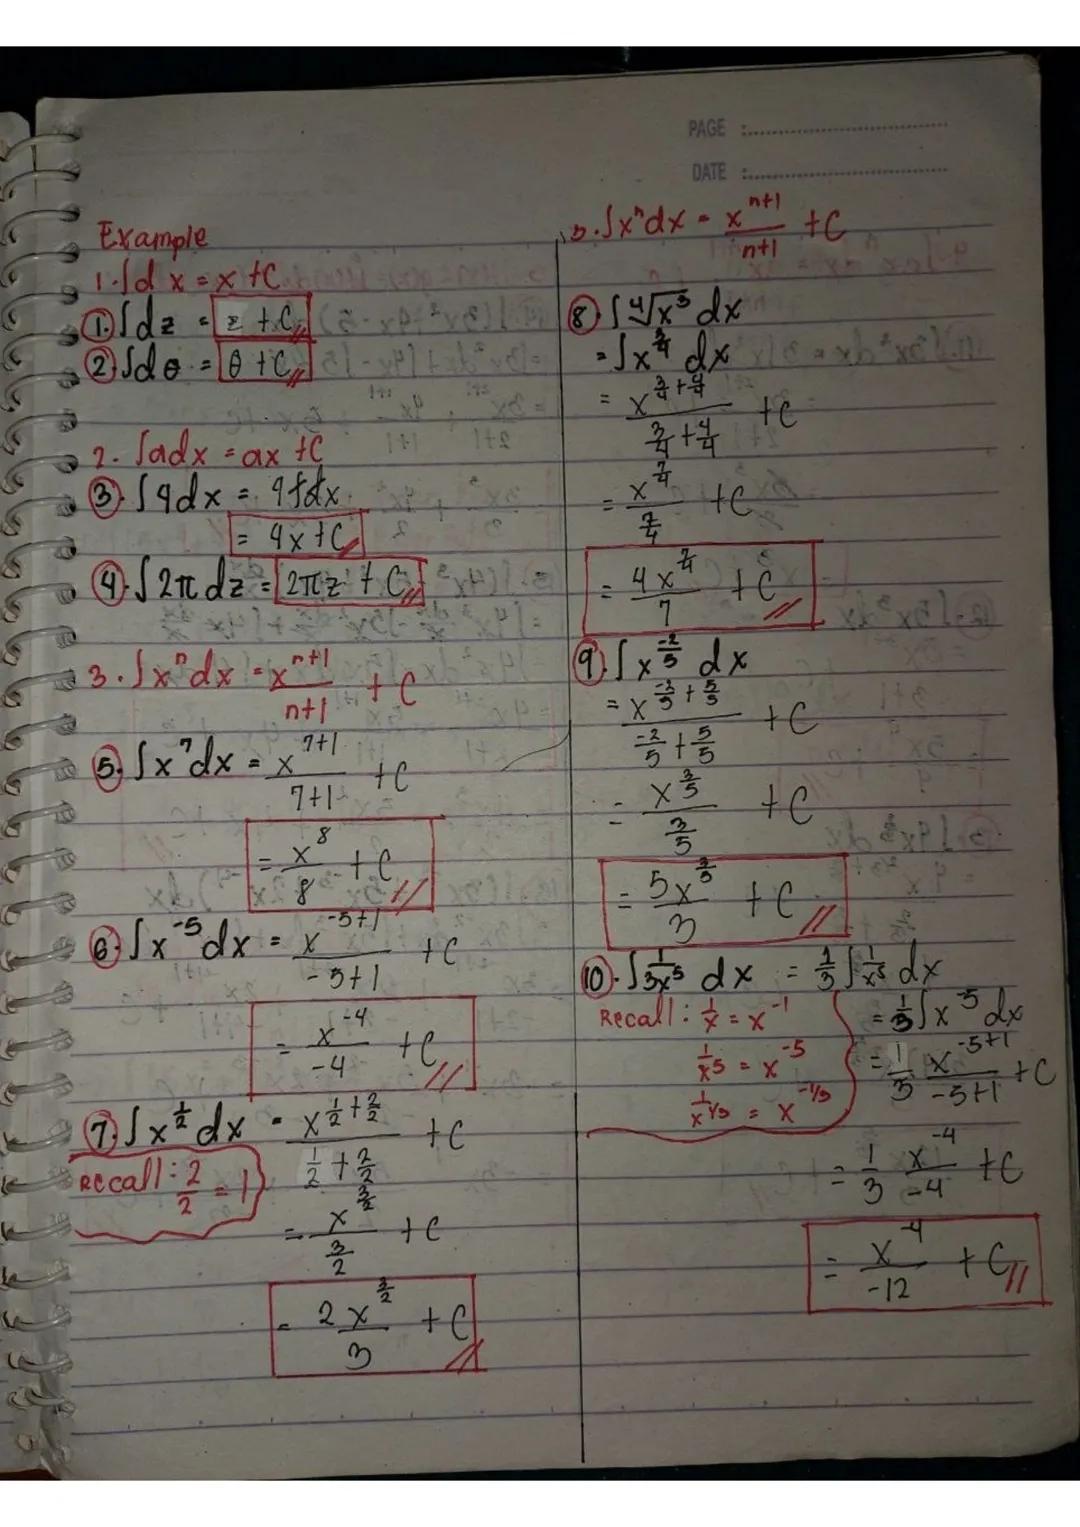 PAGE :........................
DATE :........................
Example
1. ∫dx = x + C
①. ∫dz = z + C
②. ∫dθ = θ + C
2. ∫adx = ax + C
③. ∫4dx = 4∫dx
= 4x + C
④. ∫2π dz = 2πz + C
3. ∫xⁿdx = xⁿ⁺¹/n+1 + C
⑤. ∫x⁷dx = x⁷⁺¹/7+1 + C
= x⁸/8 + C
⑥. ∫x⁻⁵dx = x⁻⁵⁺¹/-5+1 + C
= x⁻⁴/-4 + C
⑦. ∫x^(1/2) dx = x^(1/2 + 2/2)/(1/2 + 2/2) + C
Recall: 2/2 = 1
= x^(3/2)/(3/2) + C
= 2x^(3/2)/3 + C
3. ∫xⁿdx = xⁿ⁺¹/n+1 + C
⑧. ∫⁴√x³ dx
= ∫x^(3/4) dx
= x^(3/4 + 4/4)/(3/4 + 4/4) + C
= x^(7/4)/(7/4) + C
= 4x^(7/4)/7 + C
⑨. ∫x^(-2/5) dx
= x^(-2/5 + 5/5)/(-2/5 + 5/5) + C
= x^(3/5)/(3/5) + C
= 5x^(3/5)/3 + C
⑩. ∫1/3x⁵ dx = 1/3 ∫1/x⁵ dx
Recall: 1/x = x⁻¹
1/x⁵ = x⁻⁵
1/x^(1/3) = x^(-1/3)
= 1/3 ∫x⁻⁵dx
= 1/3 x⁻⁵⁺¹/-5+1 + C
= 1/3 x⁻⁴/-4 + C
= x⁻⁴/-12 + C